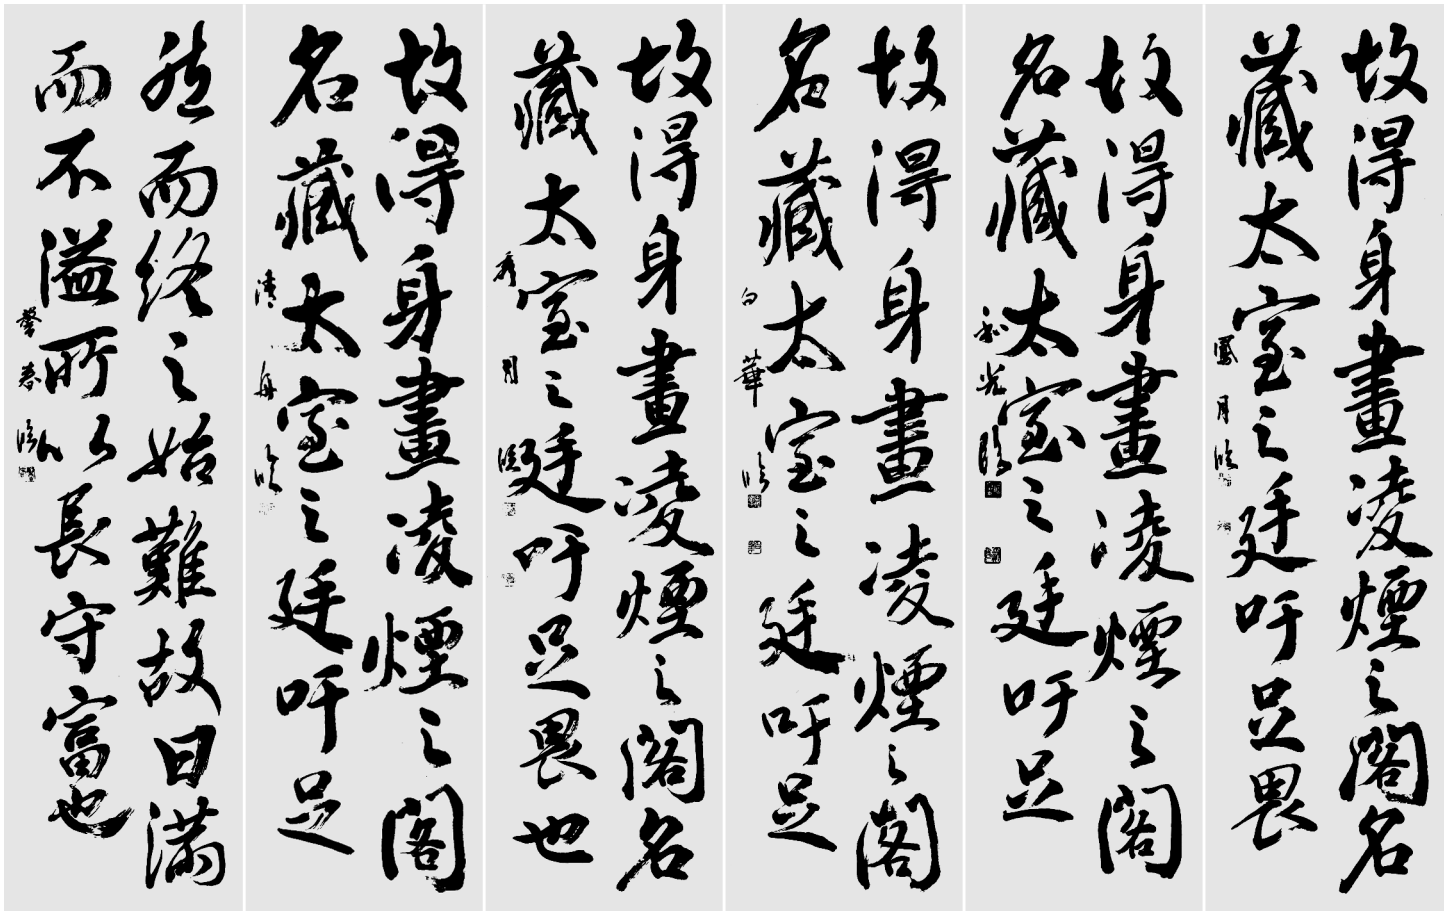 故得身畫凌煙之閣名
藏太室之廷吁足畏
鳳月臨
故得身畫凌煙之閣
名藏太室之廷吁足
和光臨
故得身畫凌煙之閣
名藏太室之廷吁足
白華臨
故得身畫凌煙之閣名
藏太室之廷吁足畏也
秀月臨
故得身畫凌煙之閣
名藏太室之廷吁足
清舟臨
然而終之始難故曰滿
而不溢所以長守富也
馨春臨